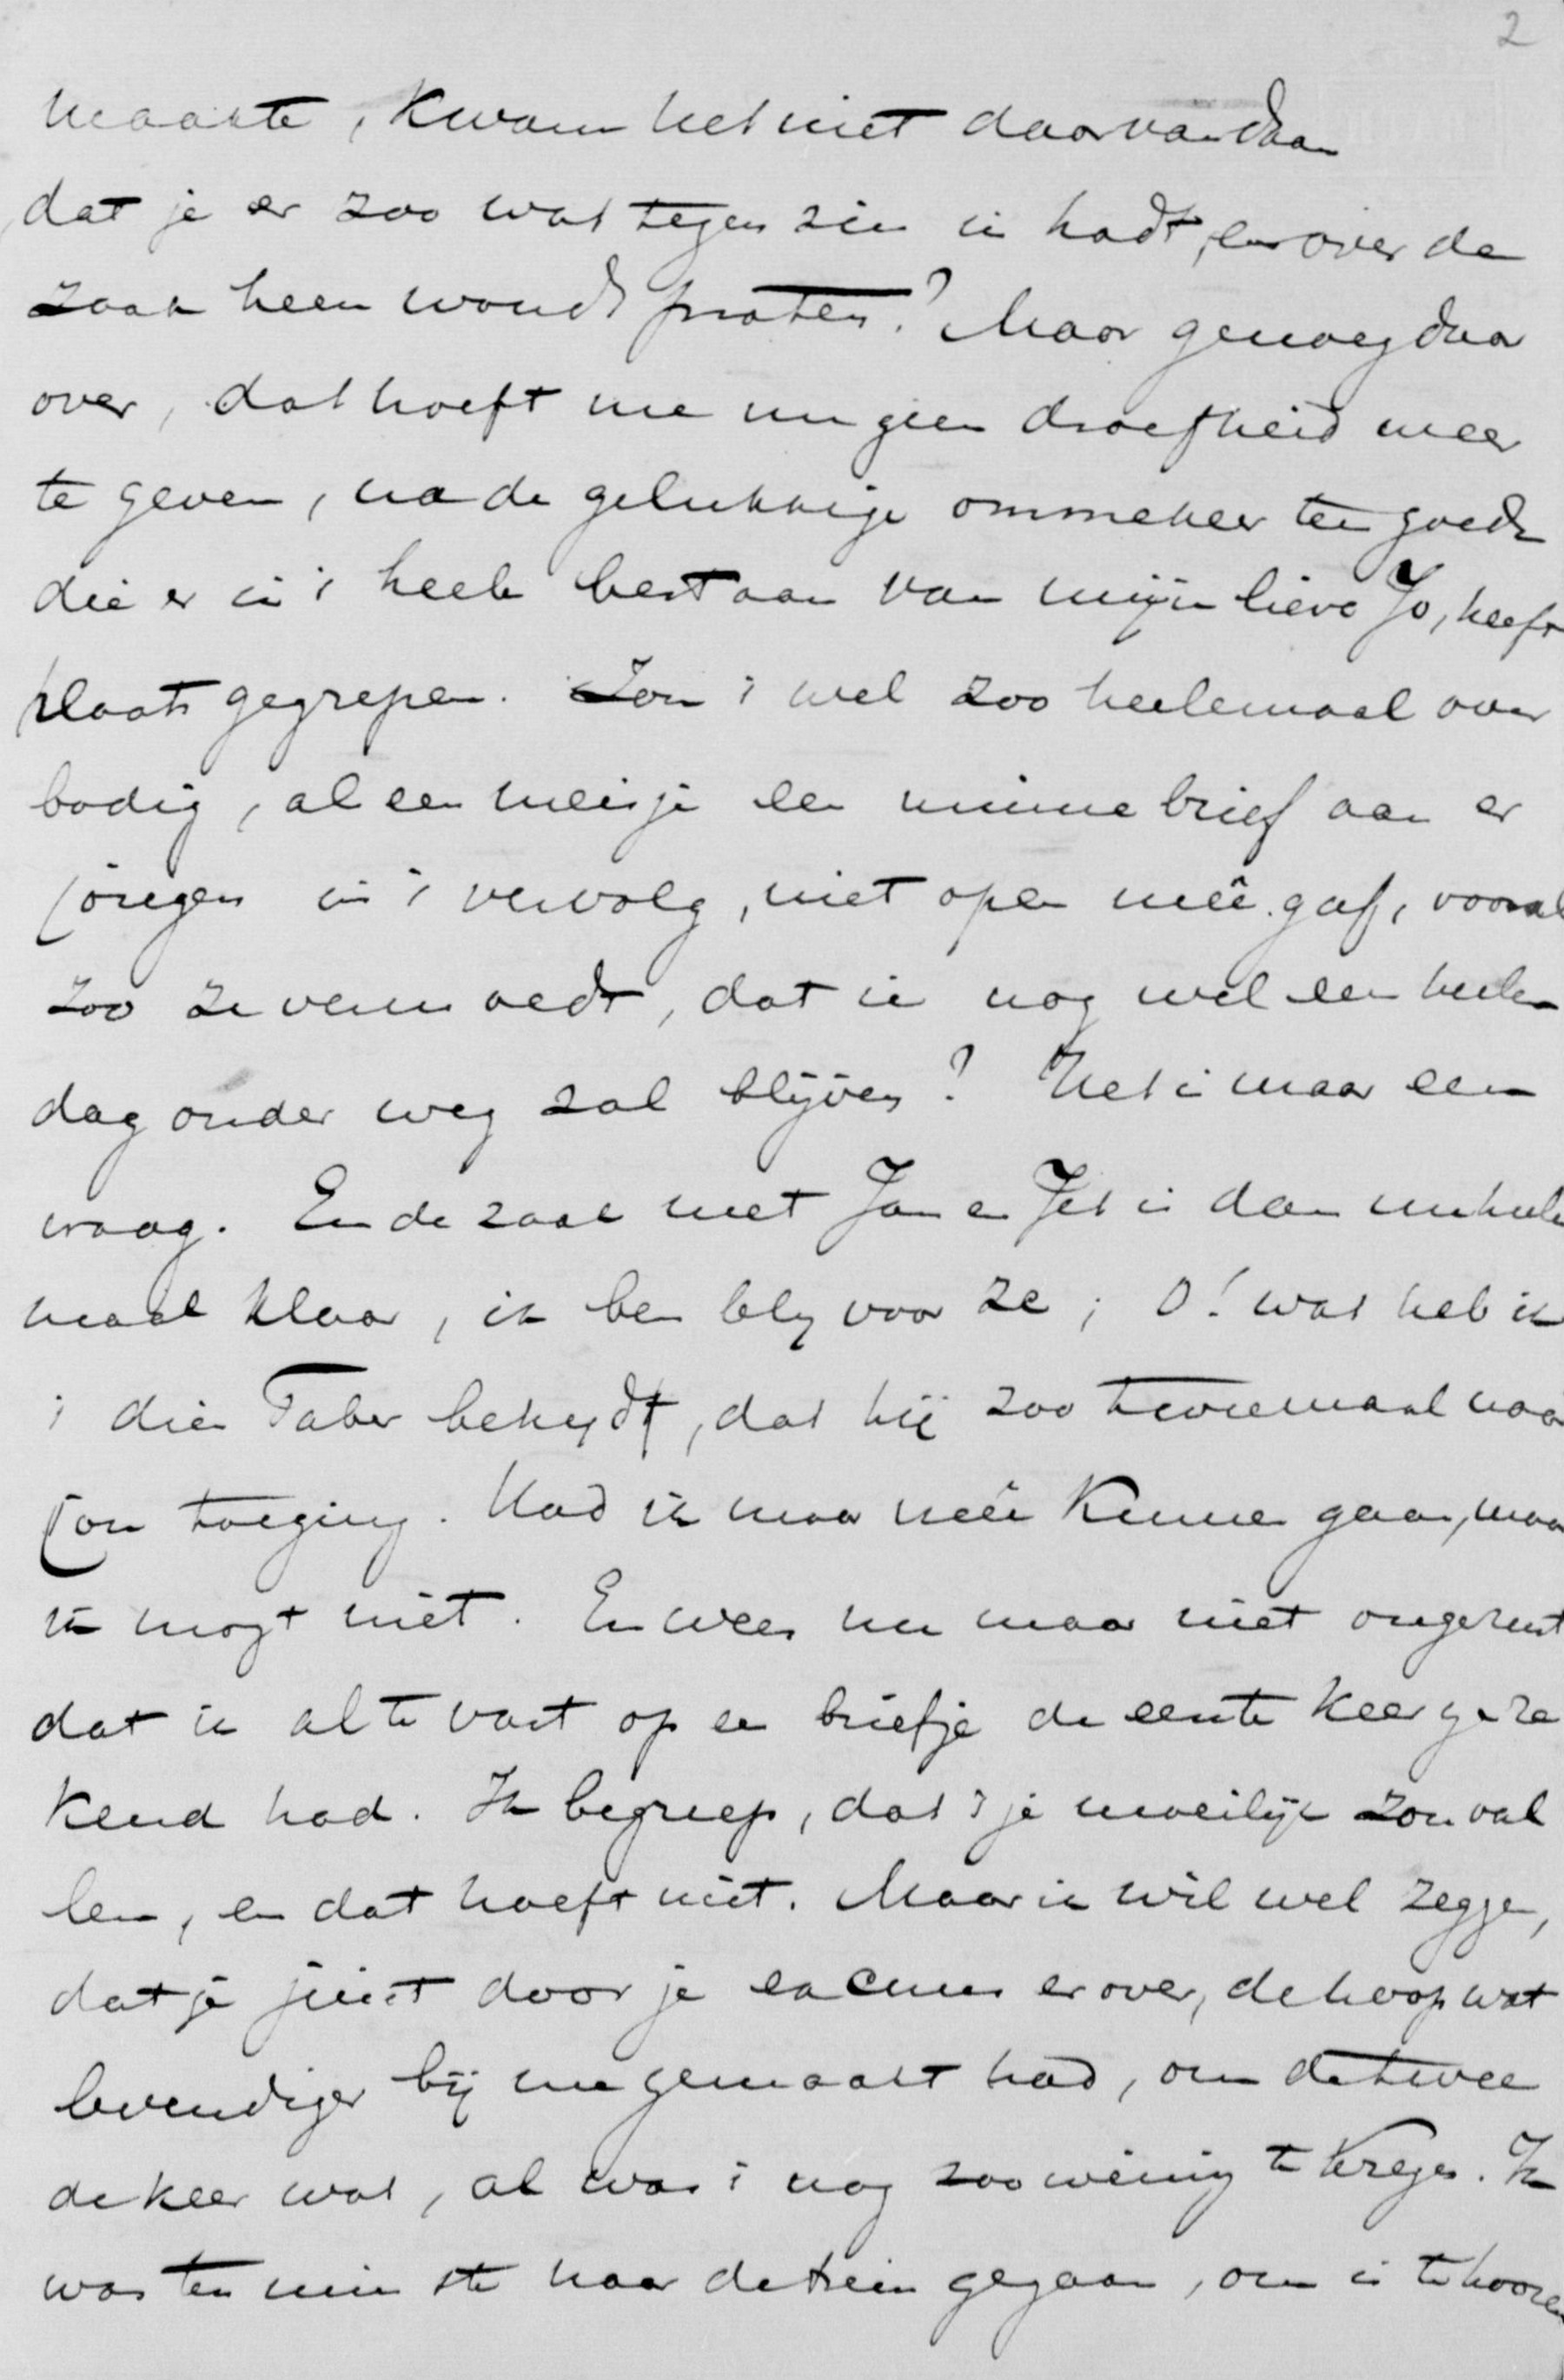 2
maakte, kwam het niet daarvandaan
dat je er zoo wat tegenzin in hadt, en over de
zaak heen woudt praten? Maar genoeg daar
over, dat hoeft me nu geen droefheid meer
te geven, na de gelukkige ommekeer ten goede
die er in 't heele bestaan van mijn lieve Jo, heeft
plaats gegrepen. Zou 't wel zoo heelemaal over
bodig, al een meisje een minnebrief aan er
jongen in 't vervolg, niet open meê gaf, vooral
zoo ze vermoedt, dat ie nog wel een heelen
dag onder weg zal blijven? Het is maar een
vraag. En de zaak met Jan en Jet is dan nu heele
maal klaar, ik ben bly voor ze; O! wat heb ik
't dien Faber benijdt, dat hij zoo tweemaal naar
jou toeging. Had ik maar meê kunnen gaan, maar
ik mogt niet. En wees nu maar niet ongerust
dat ik al te vast op een briefje de eerste keer gere
kend had. Ik begreep, dat 't je moeilijk zou val
len, en dat hoeft niet. Maar ik wil wel zeggen,
dat je juist door je excuus erover, de hoop wat
levendiger bij me gemaakt had, om de twee
de keer wat, al was 't nog zoo weinig te krijgen. Ik
was ten minste naar de trein gegaan, om is te hooren